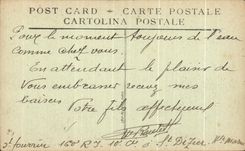 POST CARD - CARTE POSTALE
CARTOLINA POSTALE
Pour le moment toujours de l'eau
comme chez vous.
En attendant le plaisir de
vous embrasser recevez mes
baisers Votre fils affectueux
160e RI 10e Cie à St Dizier Hte Marne